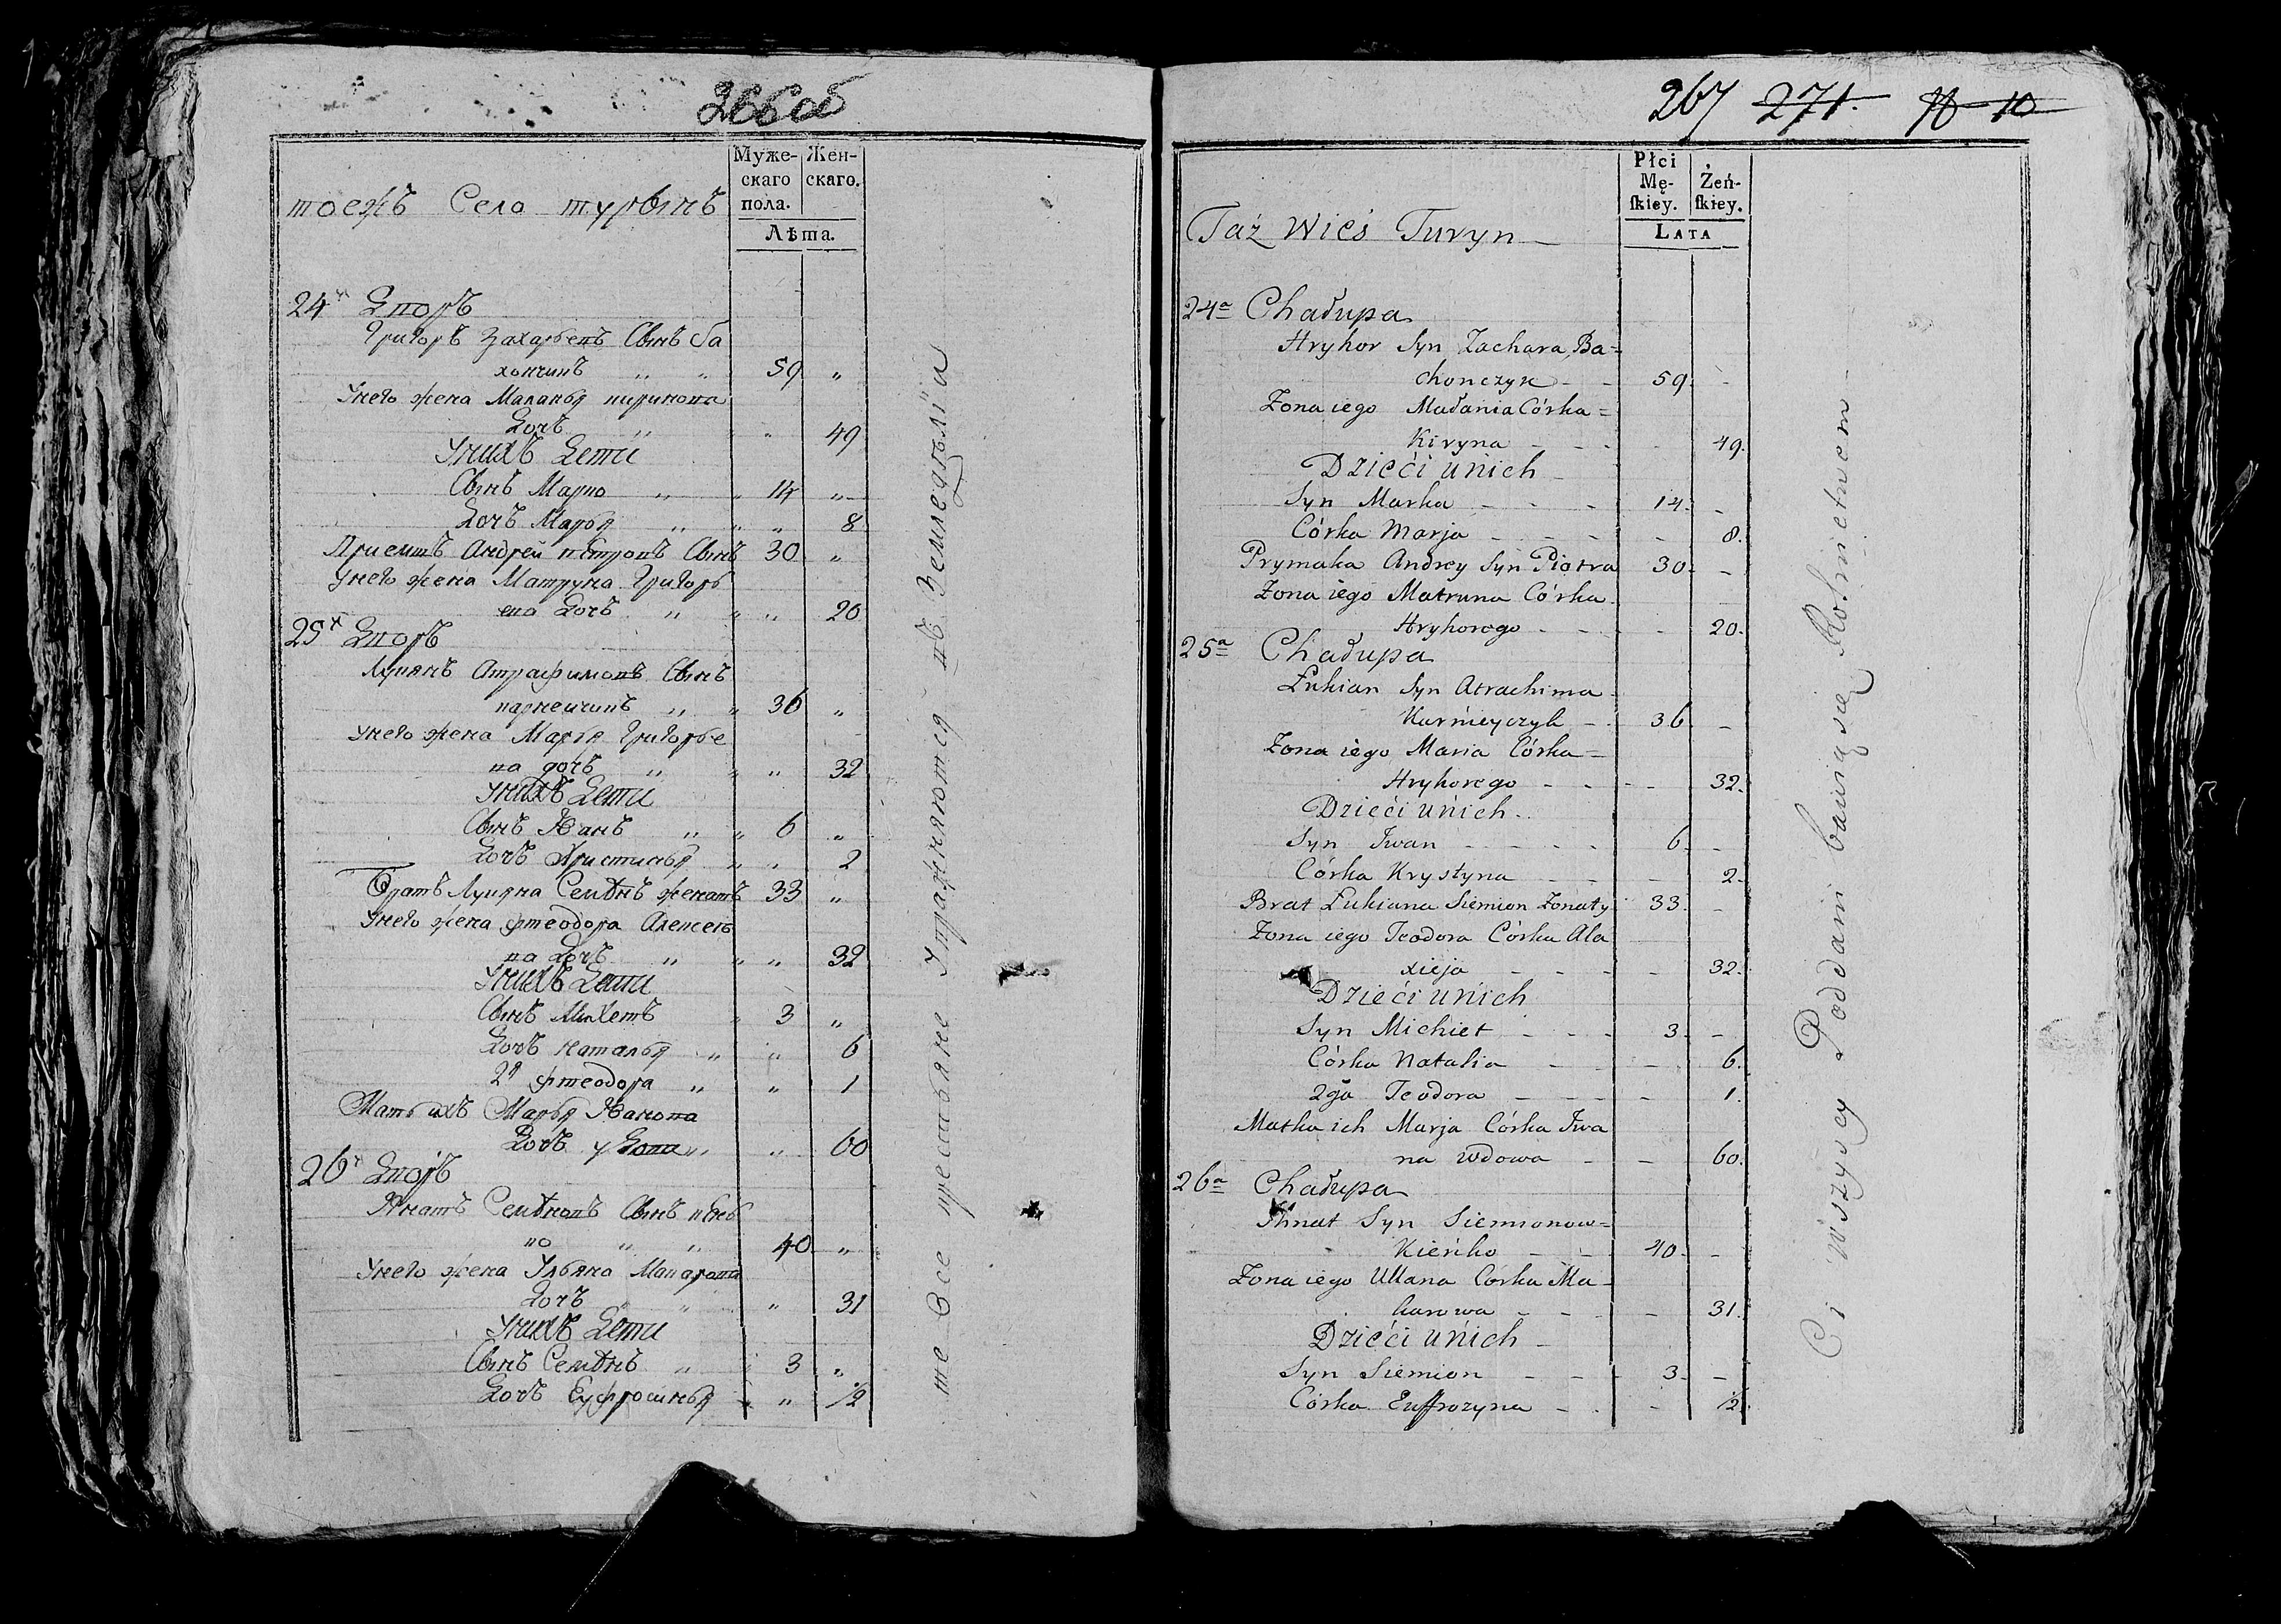 266об
Муже-
скаго
пола.
Жен-
скаго.
Лѣта.
тоежъ Село турынъ
24х Дворъ
Григоръ Захарьевъ Сынъ ба
хончикъ „ „ 59 „
Унего жена Маланья кирикова
Дочь „ „ 49
Унихъ Дети
Сынъ Марко „ „ 14 „
Дочъ Марья „ „ „ 8
Приемшъ Андрей петровъ Сынъ 30 „
Унего жена Матруна Григорь
ева Дочъ „ „ „ 20
25х Дворъ
Лукянъ Атрафимовъ Сынъ
карнейчикъ „ „ 36 „
Унего жена Марья Григорье
ва дочъ „ „ „ 32
Унихъ Дети
Сынъ Иванъ „ „ 6 „
Дочъ Христинья „ „ 2
Братъ Лукяна Семѣнъ женатъ 33 „
Унего жена фтеодора Алексеѣ
ва Дочъ „ „ „ 32
Унихъ Дети
Сынъ Михетъ „ 3 „
Дочъ Наталья „ „ 6
2я фтеодора „ „ 1
Мать ихъ Марья Иванова
Дочъ у Дова „ „ 60
26х Дворъ
Игнатъ Семѣновъ Сынъ кень
ко „ „ 40 „
Унего жена Ульяна Макарова
Дочъ „ „ 31
Унихъ Дети
Сынъ Семѣнъ „ 3 „
Дочъ Еуфросинья „ „ ½
те Все крестьяне Упражняются въ Земледѣліи
267 271. 10
Płci
Mę-
ſkiey.
Żeń-
ſkiey.
LATA
Taż Wieś Turyn
24a Chałupa
Hryhor Syn Zachara Ba-
chonczyk - - 59. -
Żona iego Małania Córka
Kiryna - - - - 49.
Dzieći unich
Syn Marka - - - 14. -
Córka Marja - - - - 8.
Prymaka Andrey Syn Piotra 30. -
Żona iego Matruna Córka
Hryhorego - - - - 20.
25a Chałupa
Łukian Syn Atrachima
Karnieyczyk - 36. -
Żona iego Maria Córka
Hryhorego - - - - 32.
Dzieći unich
Syn Iwan - - - - 6. -
Córka Krystyna - - - 2.
Brat Łukiana Siemion Żonaty 33. -
Żona iego Teodora Córka Ale
xieja - - - - - 32.
Dzieći unich
Syn Michiet - - - 3. -
Córka Natalia - - - 6.
2ga Teodora - - - - 1.
Matka ich Marja Córka Iwa
na wdowa - - 60.
26a Chałupa
Ihnat Syn Siemionow-
Kieńko - - 40. -
Żona iego Ullana Córka Ma-
karowa - - - 31.
Dzieći unich
Syn Siemion - - - 3. -
Córka Euffrozyna - - - ½.
Ci wszyscy Poddani bawią się Rolnictwem